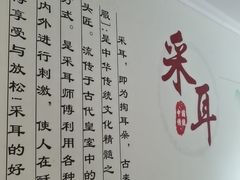 采耳
采耳，即为掏耳朵，古来
是中华传统文化精髓之
头匠。流传于古代皇室中的
方式。是采耳师傅利用各种
内外进行刺激，使人在
享受与放松！采耳的好